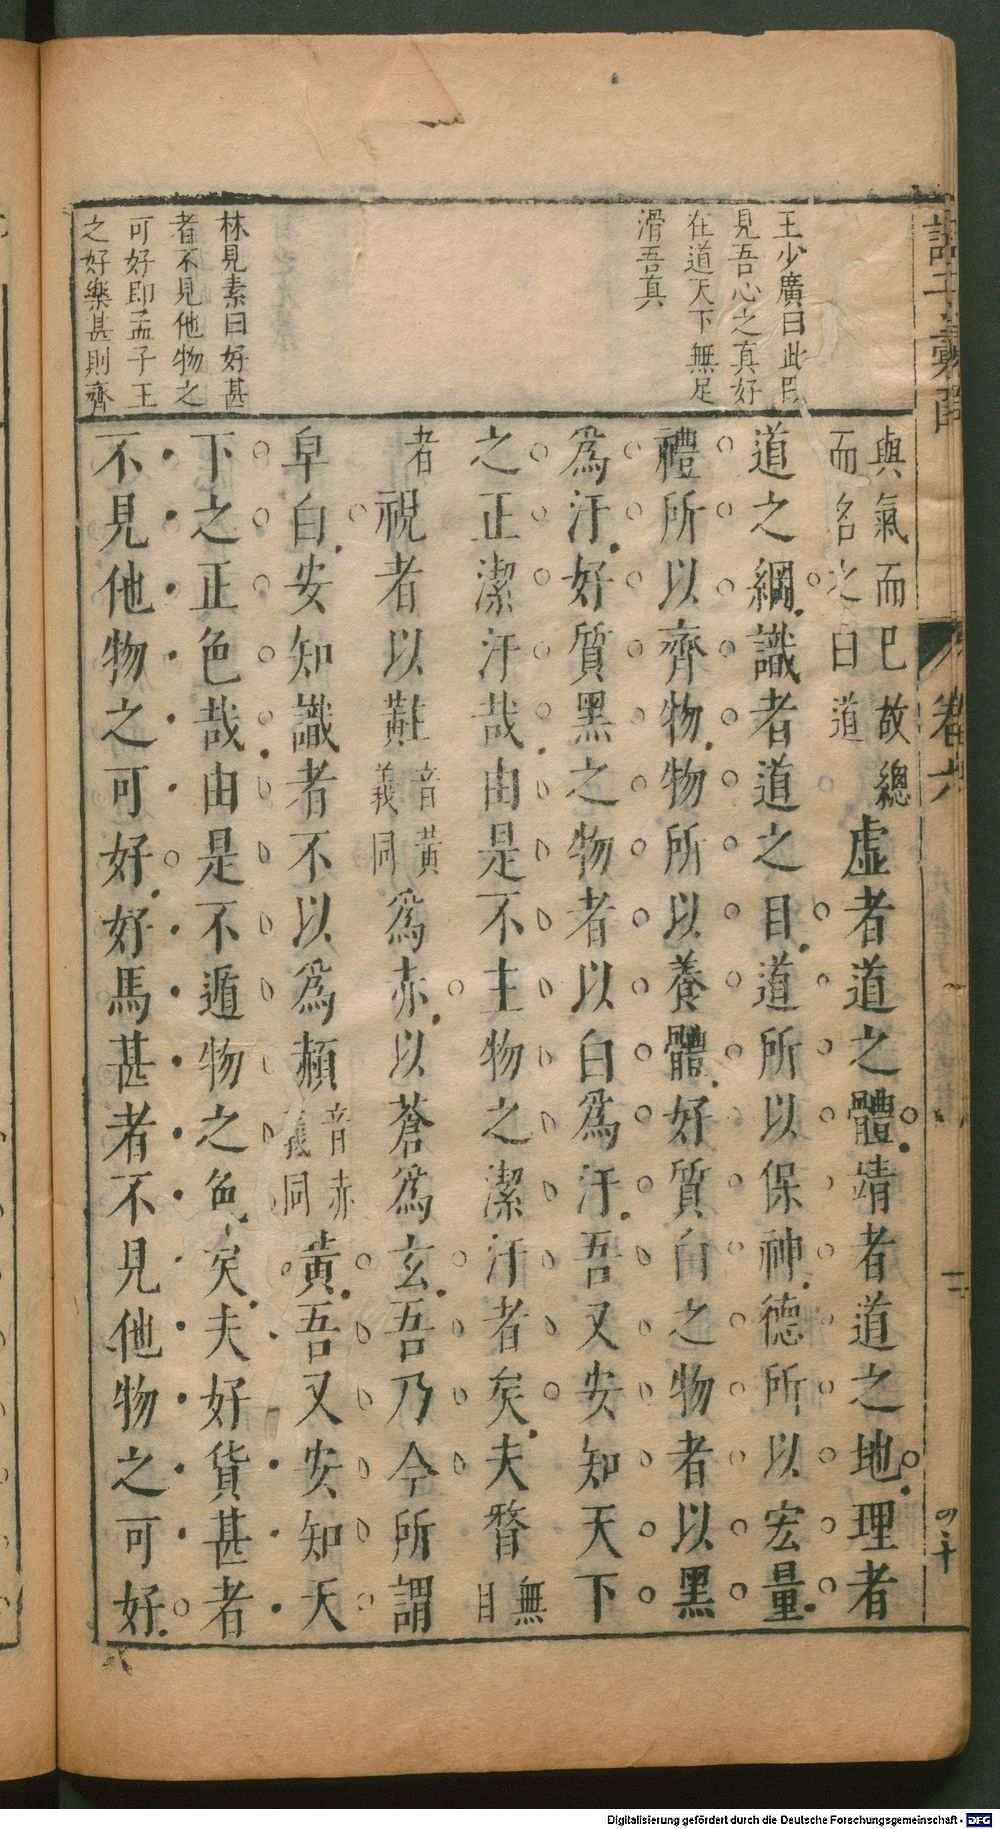 諸子彙函
卷六
四十
王少廣曰此段
見吾心之真好
在道天下無足
滑吾真
林見素曰好甚
者不見他物之
可好即孟子王
之好樂甚則齊
與氣而已故總
而名之曰道
虛者道之體靖者道之地理者
道之綱識者道之目道所以保神德所以宏量
禮所以齊物物所以養體好質白之物者以黑
為汙好質黑之物者以白為汙吾又安知天下
之正潔汙哉由是不主物之潔汙者矣夫瞀無目
者視者以黈音黃義同為赤以蒼為玄吾乃今所謂
皁白安知識者不以為赬音赤義同黃吾又安知天
下之正色哉由是不遁物之色矣夫好貨甚者
不見他物之可好好馬甚者不見他物之可好
Digitalisierung gefördert durch die Deutsche Forschungsgemeinschaft - DFG